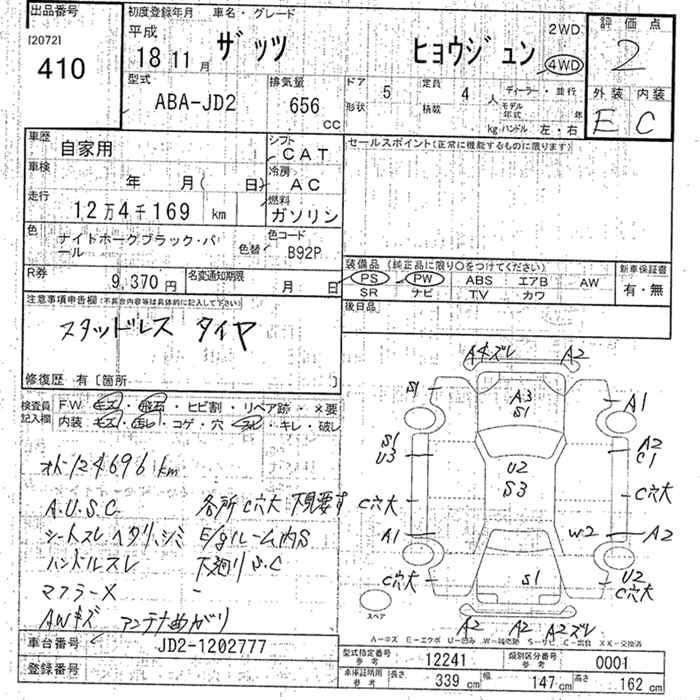 出品番号 初度登録年月 車名・グレード 評価点
[2072]
410
平成 18 11月 ザッツ ヒョウジュン 2WD 4WD 2
型式 ABA-JD2 排気量 656 cc ドア 5 形状 定員 4 人 積数 kg ディーラー・並行 モデル年式 年 ハンドル 左・右
外装 内装
E C
車歴 自家用 シフト CAT
セールスポイント(正常に機能するものに限ります)
車検 年 月( 日) 冷房 AC
走行 12万4千169 km 燃料 ガソリン
色 ナイトホークブラック・パール 色替 色コード B92P
装備品(純正品に限り○をつけてください) 新車保証書
PS PW ABS エアB AW 有・無
SR ナビ T.V カワ
R券 9,370円 名変通知期限 月 日
後日品
注意事項申告欄(不具合内容等は具体的に記入して下さい)
スタッドレス タイヤ
修復歴 有[箇所 ]
検査員記入欄 FW キズ・飛石・ヒビ割・リペア跡・×要
内装 キズ・汚レ・コゲ・穴・スレ・キレ・破レ
オド124696km
A.U.S.C 各所C穴大 下見要す
シートスレ ヘタリ、シミ E/gルーム内S
ハンドルスレ 下廻りS.C
マフラーX
AWキズ アンテナめがり
Aキズレ A2
S1 A3 S1 A1
S1 U3 A2 C1
U2 S3
C穴大 C穴大
A1 W2 A2
C穴大 S1 U2 C穴大
スペア
A2 A2 A2ズレ
車台番号 JD2-1202777
登録番号
型式指定番号 参考 12241 類別区分番号 参考 0001
車庫証明用 参考 長さ 339 cm 幅 147 cm 高さ 162 cm